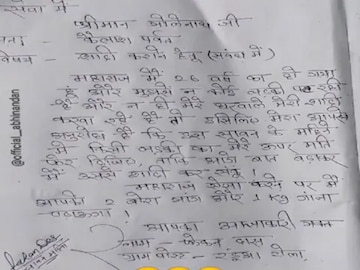 सेवा में
श्रीमान भोलेनाथ जी
कैलाश पर्वत
विषय - शादी करने हेतू (संबंध में)
महाराज मैं 26 वर्ष का हो गया
हूं और मुझसे न कोई लड़की
और न ही मेरे घरवाले मेरी शादी
करवा रहे है इसलिए मेरा आपसे
है कि इस सावन के महिने
में किसी लड़की का मेरे ऊपर मति
फेर दिजिए, ताकि आगे बात बढ़ाकर
मैं उससे शादी कर सकु।
महाराज ऐसा करने पर मैं
आपको 2 बोरा भांग और 1 kg गांजा
चढ़ाऊंगा।
आपका आज्ञाकारी भक्त
नाम -
ग्राम पोस्ट -
@official_abhinandan